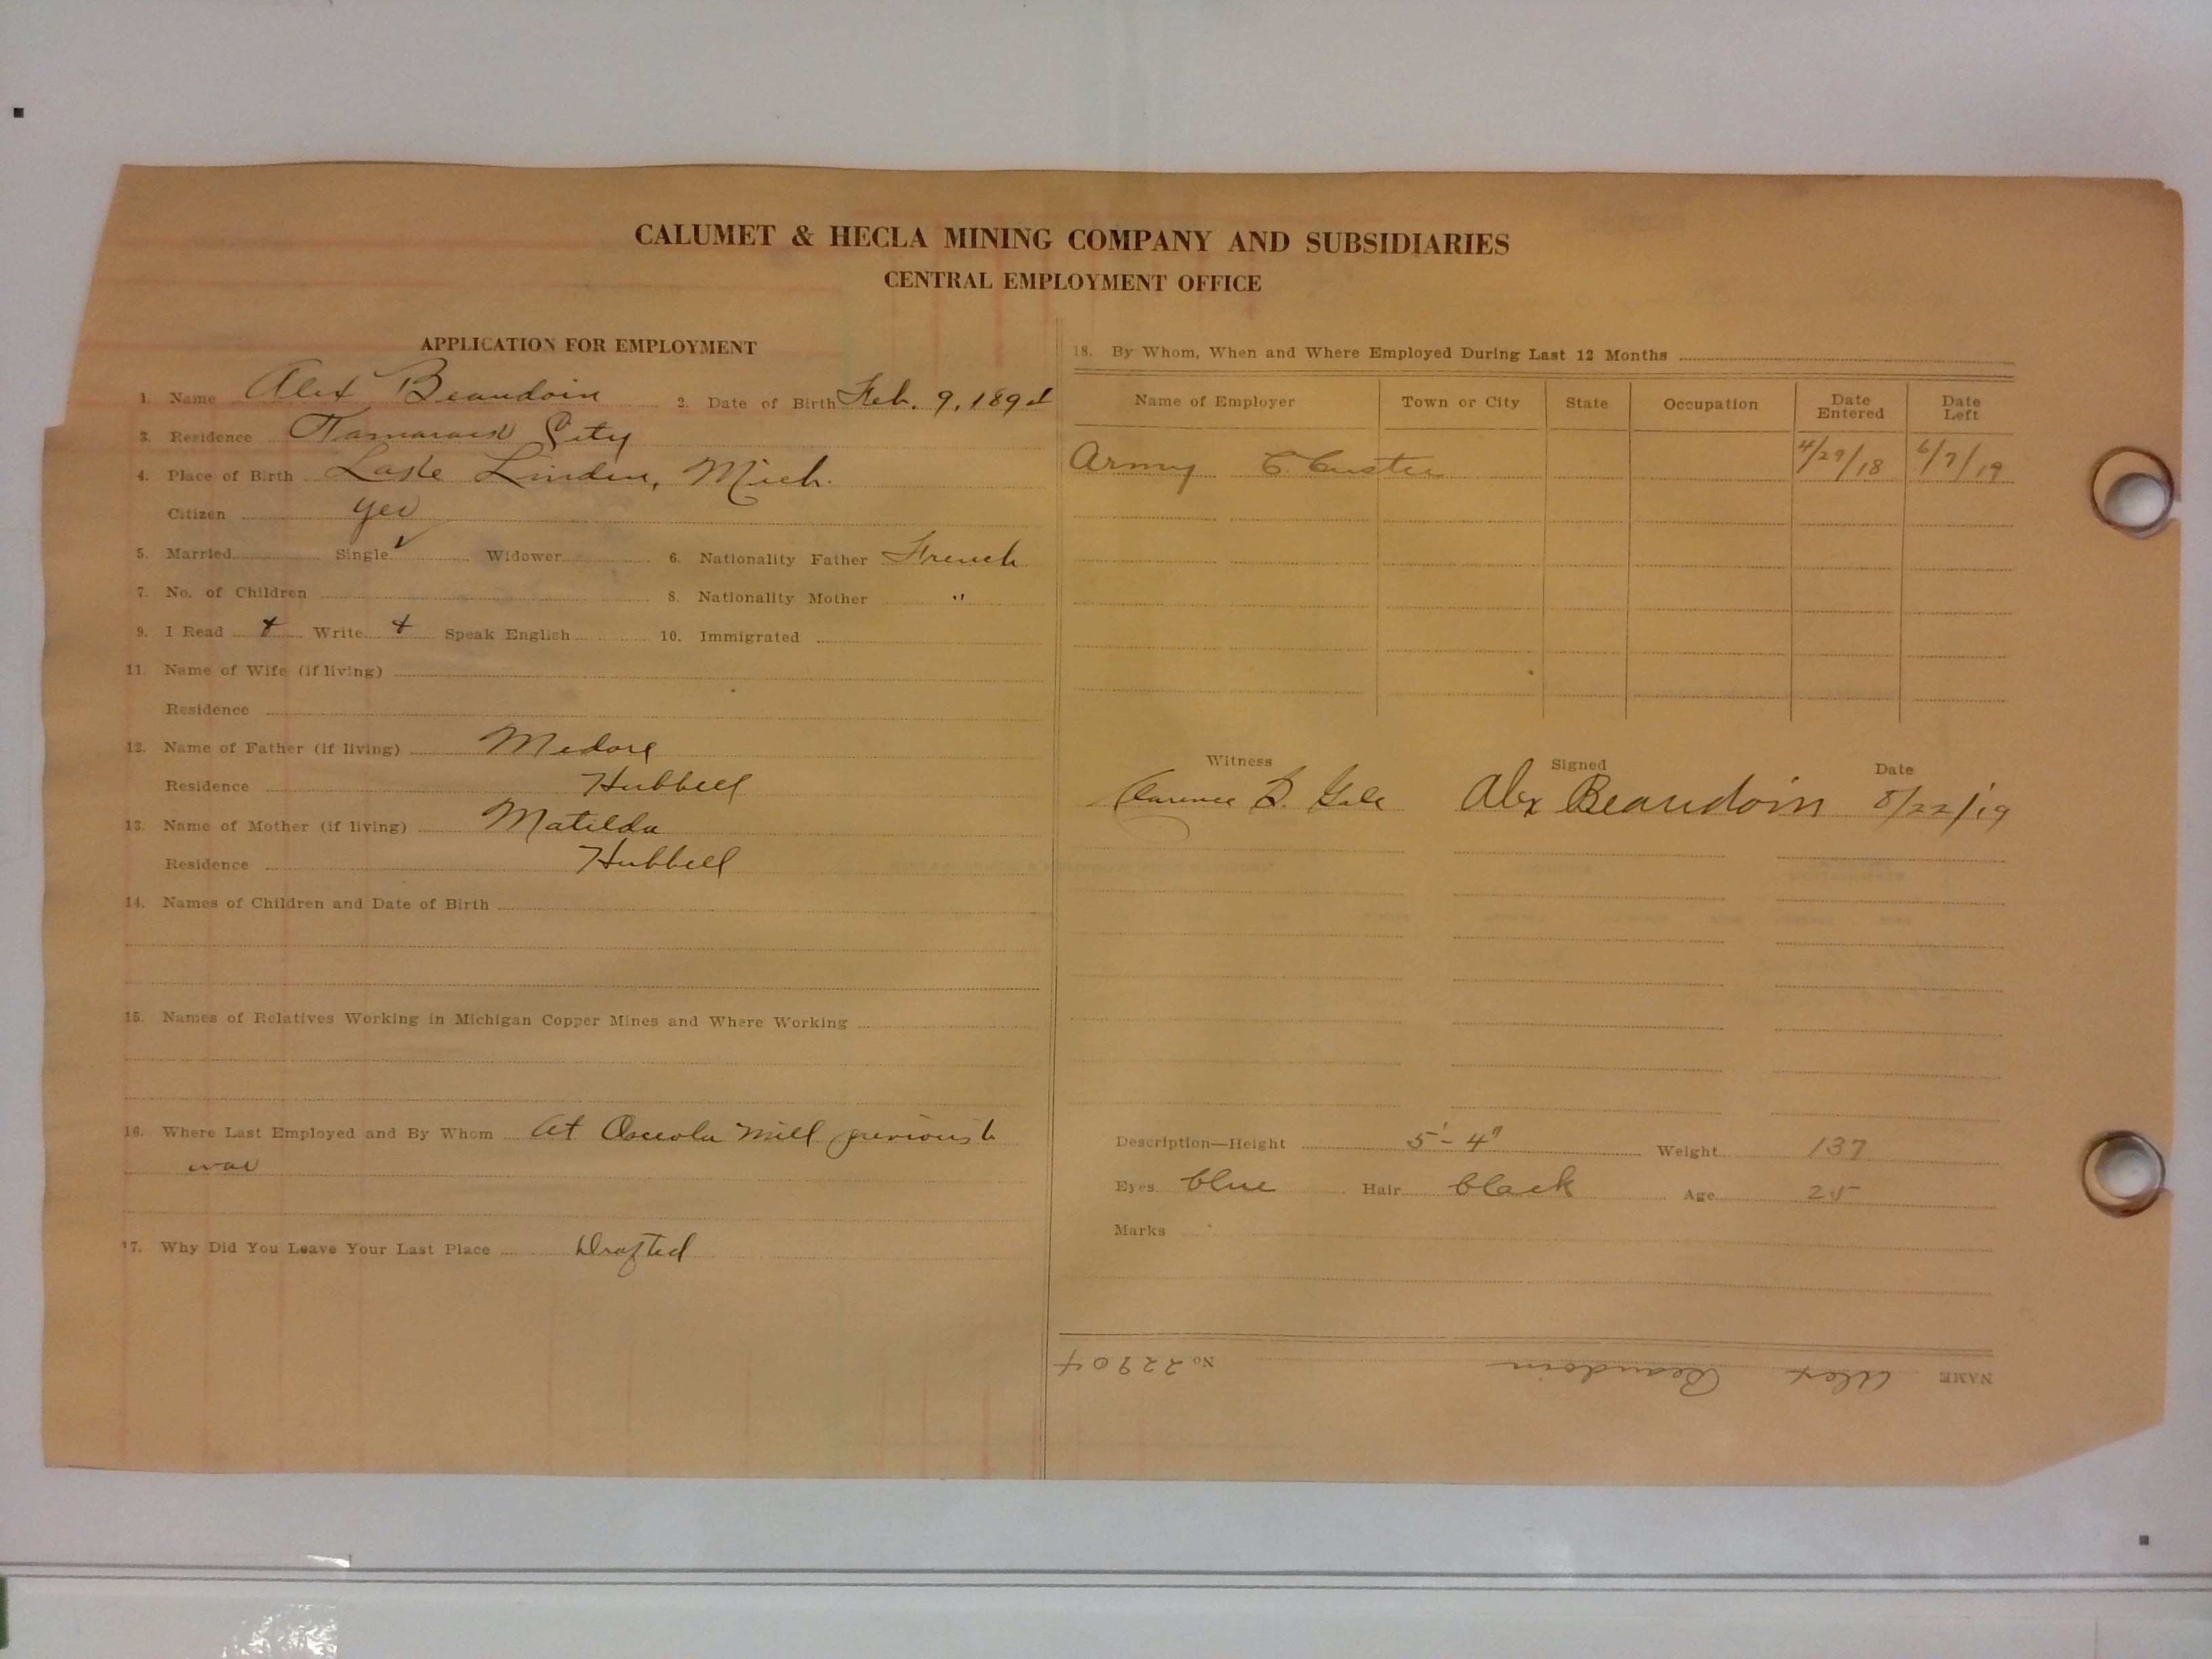 CALUMET & HECLA MINING COMPANY AND SUBSIDIARIES
CENTRAL EMPLOYMENT OFFICE
APPLICATION FOR EMPLOYMENT
1. Name Alex Beaudoin 2. Date of Birth Feb. 9, 1894
3. Residence Tamarack City
4. Place of Birth Lake Linden, Mich.
Citizen yes
5. Married Single ✓ Widower 6. Nationality Father French
7. No. of Children 8. Nationality Mother "
9. I Read + Write + Speak English 10. Immigrated
11. Name of Wife (if living)
Residence
12. Name of Father (if living) Medore
Residence Hubbell
13. Name of Mother (if living) Matilda
Residence Hubbell
14. Names of Children and Date of Birth
15. Names of Relatives Working in Michigan Copper Mines and Where Working
16. Where Last Employed and By Whom At Osceola Mill previous to
war
17. Why Did You Leave Your Last Place Drafted
18. By Whom, When and Where Employed During Last 12 Months
Name of Employer Town or City State Occupation Date Entered Date Left
Army C. Custer 4/29/18 6/7/19
Witness Signed Date
Clarence Alex Beaudoin 8/22/19
Description—Height 5'-4" Weight 137
Eyes blue Hair black Age 25
Marks
NAME Alex Beaudoin No 22904